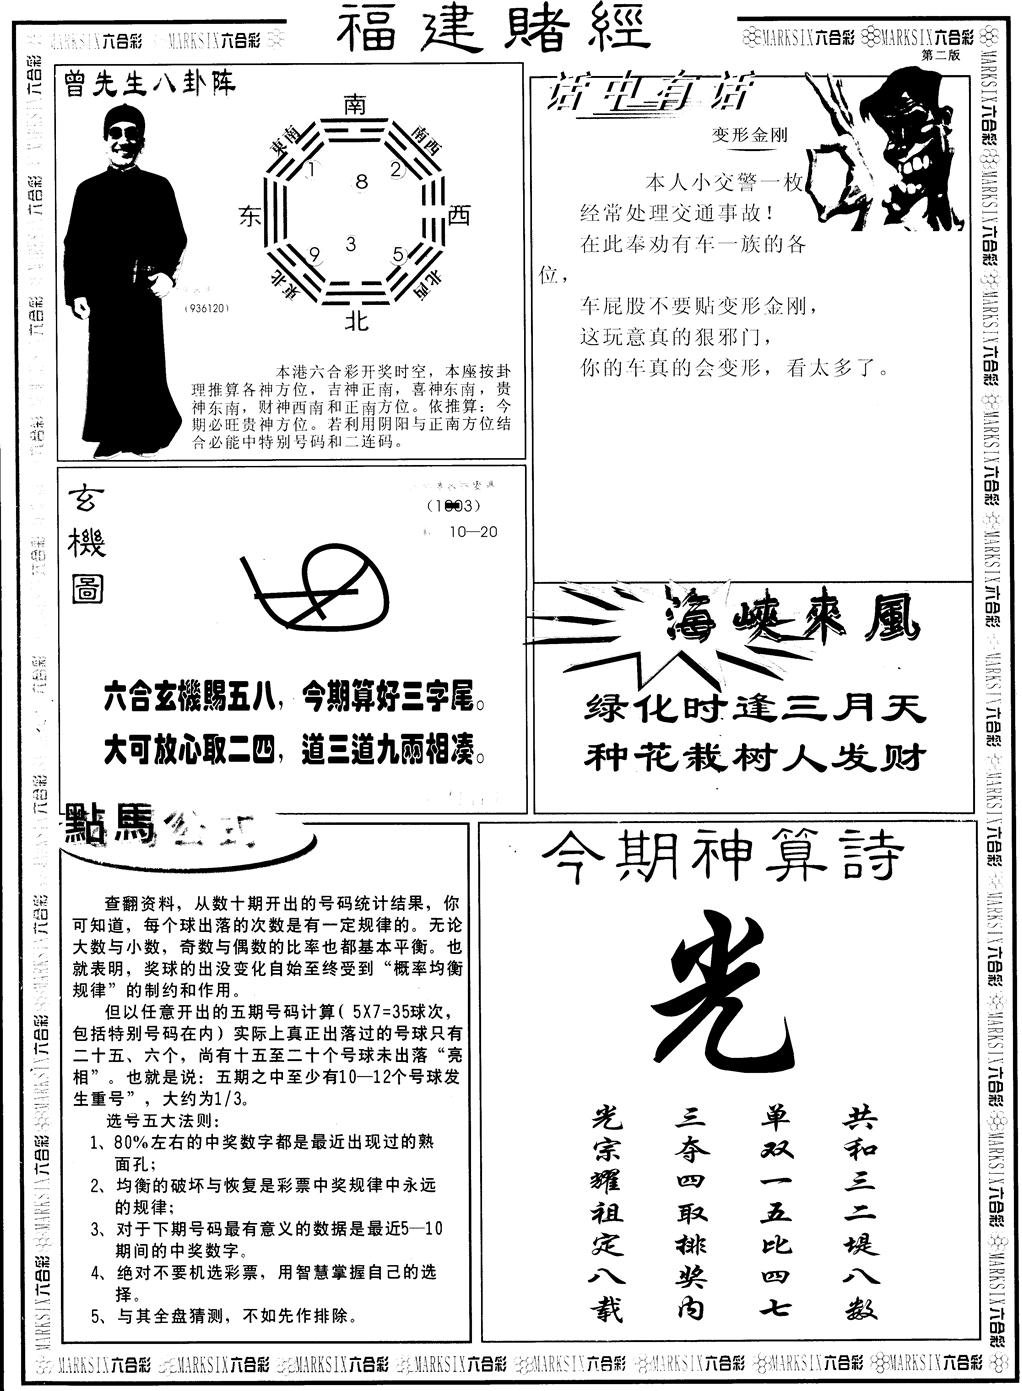 福建賭經
MARKSIX六合彩 MARKSIX六合彩
MARKSIX六合彩 MARKSIX六合彩
第二版
曾先生八卦阵
南
東南
南西
1
8
2
东
西
9
3
5
東北
北西
北
(936120)
本港六合彩开奖时空，本座按卦
理推算各神方位，吉神正南，喜神东南，贵
神东南，财神西南和正南方位。依推算：今
期必旺贵神方位。若利用阴阳与正南方位结
合必能中特别号码和二连码。
话中有话
变形金刚
本人小交警一枚
经常处理交通事故！
在此奉劝有车一族的各
位，
车屁股不要贴变形金刚，
这玩意真的狠邪门，
你的车真的会变形，看太多了。
玄機圖
10—20
六合玄機賜五八，今期算好三字尾。
大可放心取二四，道三道九兩相凑。
海峽來風
绿化时逢三月天
种花栽树人发财
點馬公式
查翻资料，从数十期开出的号码统计结果，你
可知道，每个球出落的次数是有一定规律的。无论
大数与小数，奇数与偶数的比率也都基本平衡。也
就表明，奖球的出没变化自始至终受到“概率均衡
规律”的制约和作用。
但以任意开出的五期号码计算( 5X7=35球次，
包括特别号码在内）实际上真正出落过的号球只有
二十五、六个，尚有十五至二十个号球未出落“亮
相”。也就是说：五期之中至少有10—12个号球发
生重号”，大约为1/3。
选号五大法则：
1、80%左右的中奖数字都是最近出现过的熟
面孔；
2、均衡的破坏与恢复是彩票中奖规律中永远
的规律；
3、对于下期号码最有意义的数据是最近5—10
期间的中奖数字。
4、绝对不要机选彩票，用智慧掌握自己的选
择。
5、与其全盘猜测，不如先作排除。
今期神算詩
光
光宗耀祖定八载
三夺四取排奖内
单双一五比四七
共和三二堤八数
MARKSIX六合彩 MARKSIX六合彩 MARKSIX六合彩 MARKSIX六合彩 MARKSIX六合彩 MARKSIX六合彩 MARKSIX六合彩 MARKSIX六合彩